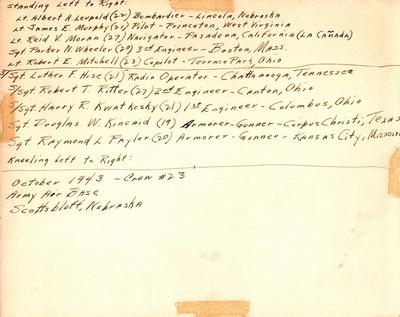 Standing Left to Right:
Lt. Albert A. Leupold (22) Bombardier - Lincoln, Nebraska
Lt James E. Murphy (21) Pilot - Princeton, West Virginia
Lt Reid V. Moran (27) Navigator - Pasadena, California (La Cañada)
Sgt Parker N. Wheeler (20) 3rd Engineer - Boston, Mass.
Lt Robert E. Mitchell (23) Copilot - Terrace Park, Ohio
S/Sgt Luther F Hise (21) Radio Operator - Chattanooga, Tennessee
S/Sgt Robert T. Ritter (27) 2nd Engineer - Canton, Ohio
S/Sgt Harry R. Kwiatkosky (21) 1st Engineer - Columbus, Ohio
Sgt Douglas W. Kincaid (19) Armorer-Gunner - Corpus Christi, Texas
Sgt Raymond L. Paylor (20) Armorer - Gunner - Kansas City, Missouri
Kneeling Left to Right:
October 1943 - Crew #23
Army Air Base
Scottsbluff, Nebraska